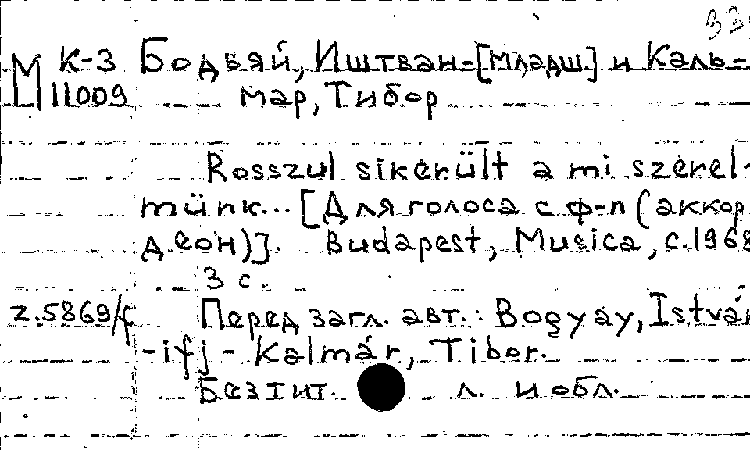 33
М К-3 Бодьяй, Иштван-[младш.] и Каль-
11009 мар, Тибор
Rosszul sikerült a mi szerel-
münk... [Для голоса с ф-п (аккор
деон)]. Budapest, Musica, c.1968
3 с.
z.5869/f Перед загл. авт.: Bogyay, Istvá
-ifj - Kalmár, Tibor.
Без тит. л. и обл.